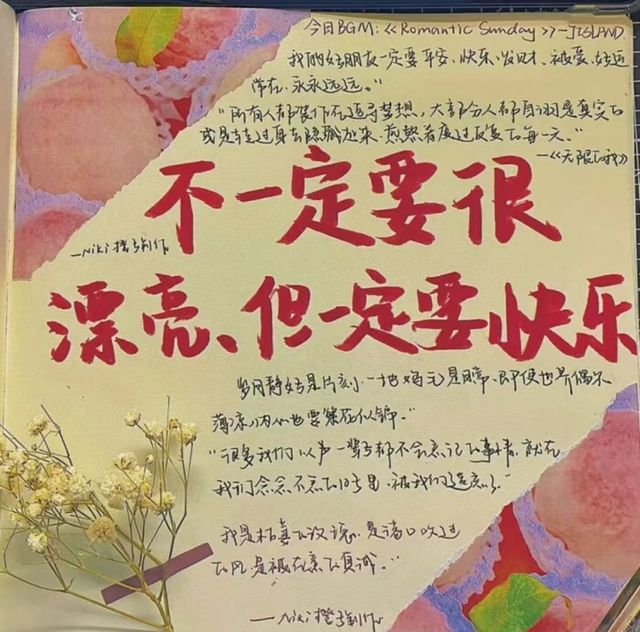 今日BGM:《Romantic Sunday》—JISLAND
我的好朋友一定要平安、快乐、发财、被爱、好运
常在、永永远远。"
"所有人都装作在追寻梦想,大部分人都自诩是真实的
或是转过身去隐藏起来,煎熬着度过反复的每一天。"
—《无限的我》
不一定要很
—Niki橙子制作
漂亮、但一定要快乐
岁月静好是片刻,一地鸡毛是日常、即便世界偶尔
薄凉,内心也要繁花似锦。"
"很多我们以为一辈子都不会忘记的事情,就在
我们念念不忘的日子里,被我们遗忘了。"
我是
是
吹过
的风,是被在意的真诚。"
—Niki橙子制作